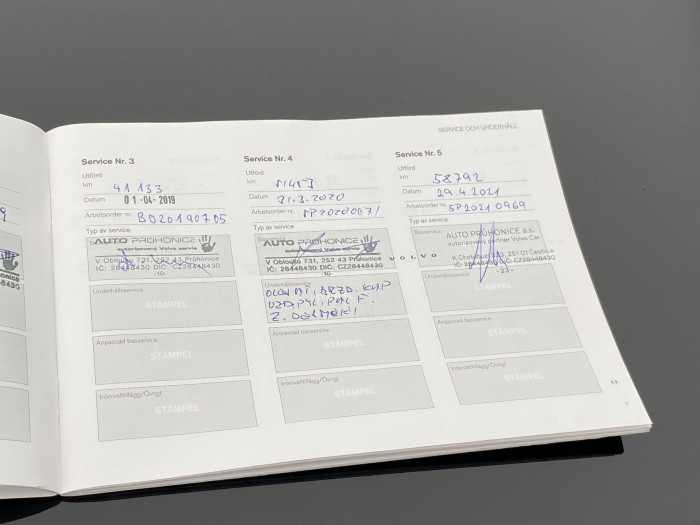 SERVICE OCH UNDERHÅLL
Service Nr. 3
Utförd
km 41 133
Datum 01-04-2019
Arbetsorder nr. BO20190705
Typ av service
AUTO PRŮHONICE
autorizovaný Volvo servis
V Oblouku 731, 252 43 Průhonice
IČ: 28448430 DIČ: CZ28448430
-10-
Underhållsservice
STÄMPEL
Anpassad basservice
STÄMPEL
Intervalltillägg/Övrigt
STÄMPEL
Service Nr. 4
Utförd
km
Datum 21.3.2020
Arbetsorder nr.
Typ av service
AUTO PRŮHONICE
autorizovaný Volvo servis
V Oblouku 731, 252 43 Průhonice
IČ: 28448430 DIČ: CZ28448430
-10-
Underhållsservice
Anpassad basservice
STÄMPEL
Intervalltillägg/Övrigt
STÄMPEL
Service Nr. 5
Utförd
km 58792
Datum 29.4.2021
Arbetsorder nr. SP2021 0969
Typ av service
Basservice
AUTO PRŮHONICE a.s.
autorizovaný partner Volvo Car
VOLVO
251 01 Čestlice
DIČ: CZ28448430
-23-
Underhållsservice
STÄMPEL
Anpassad basservice
STÄMPEL
Intervalltillägg/Övrigt
STÄMPEL